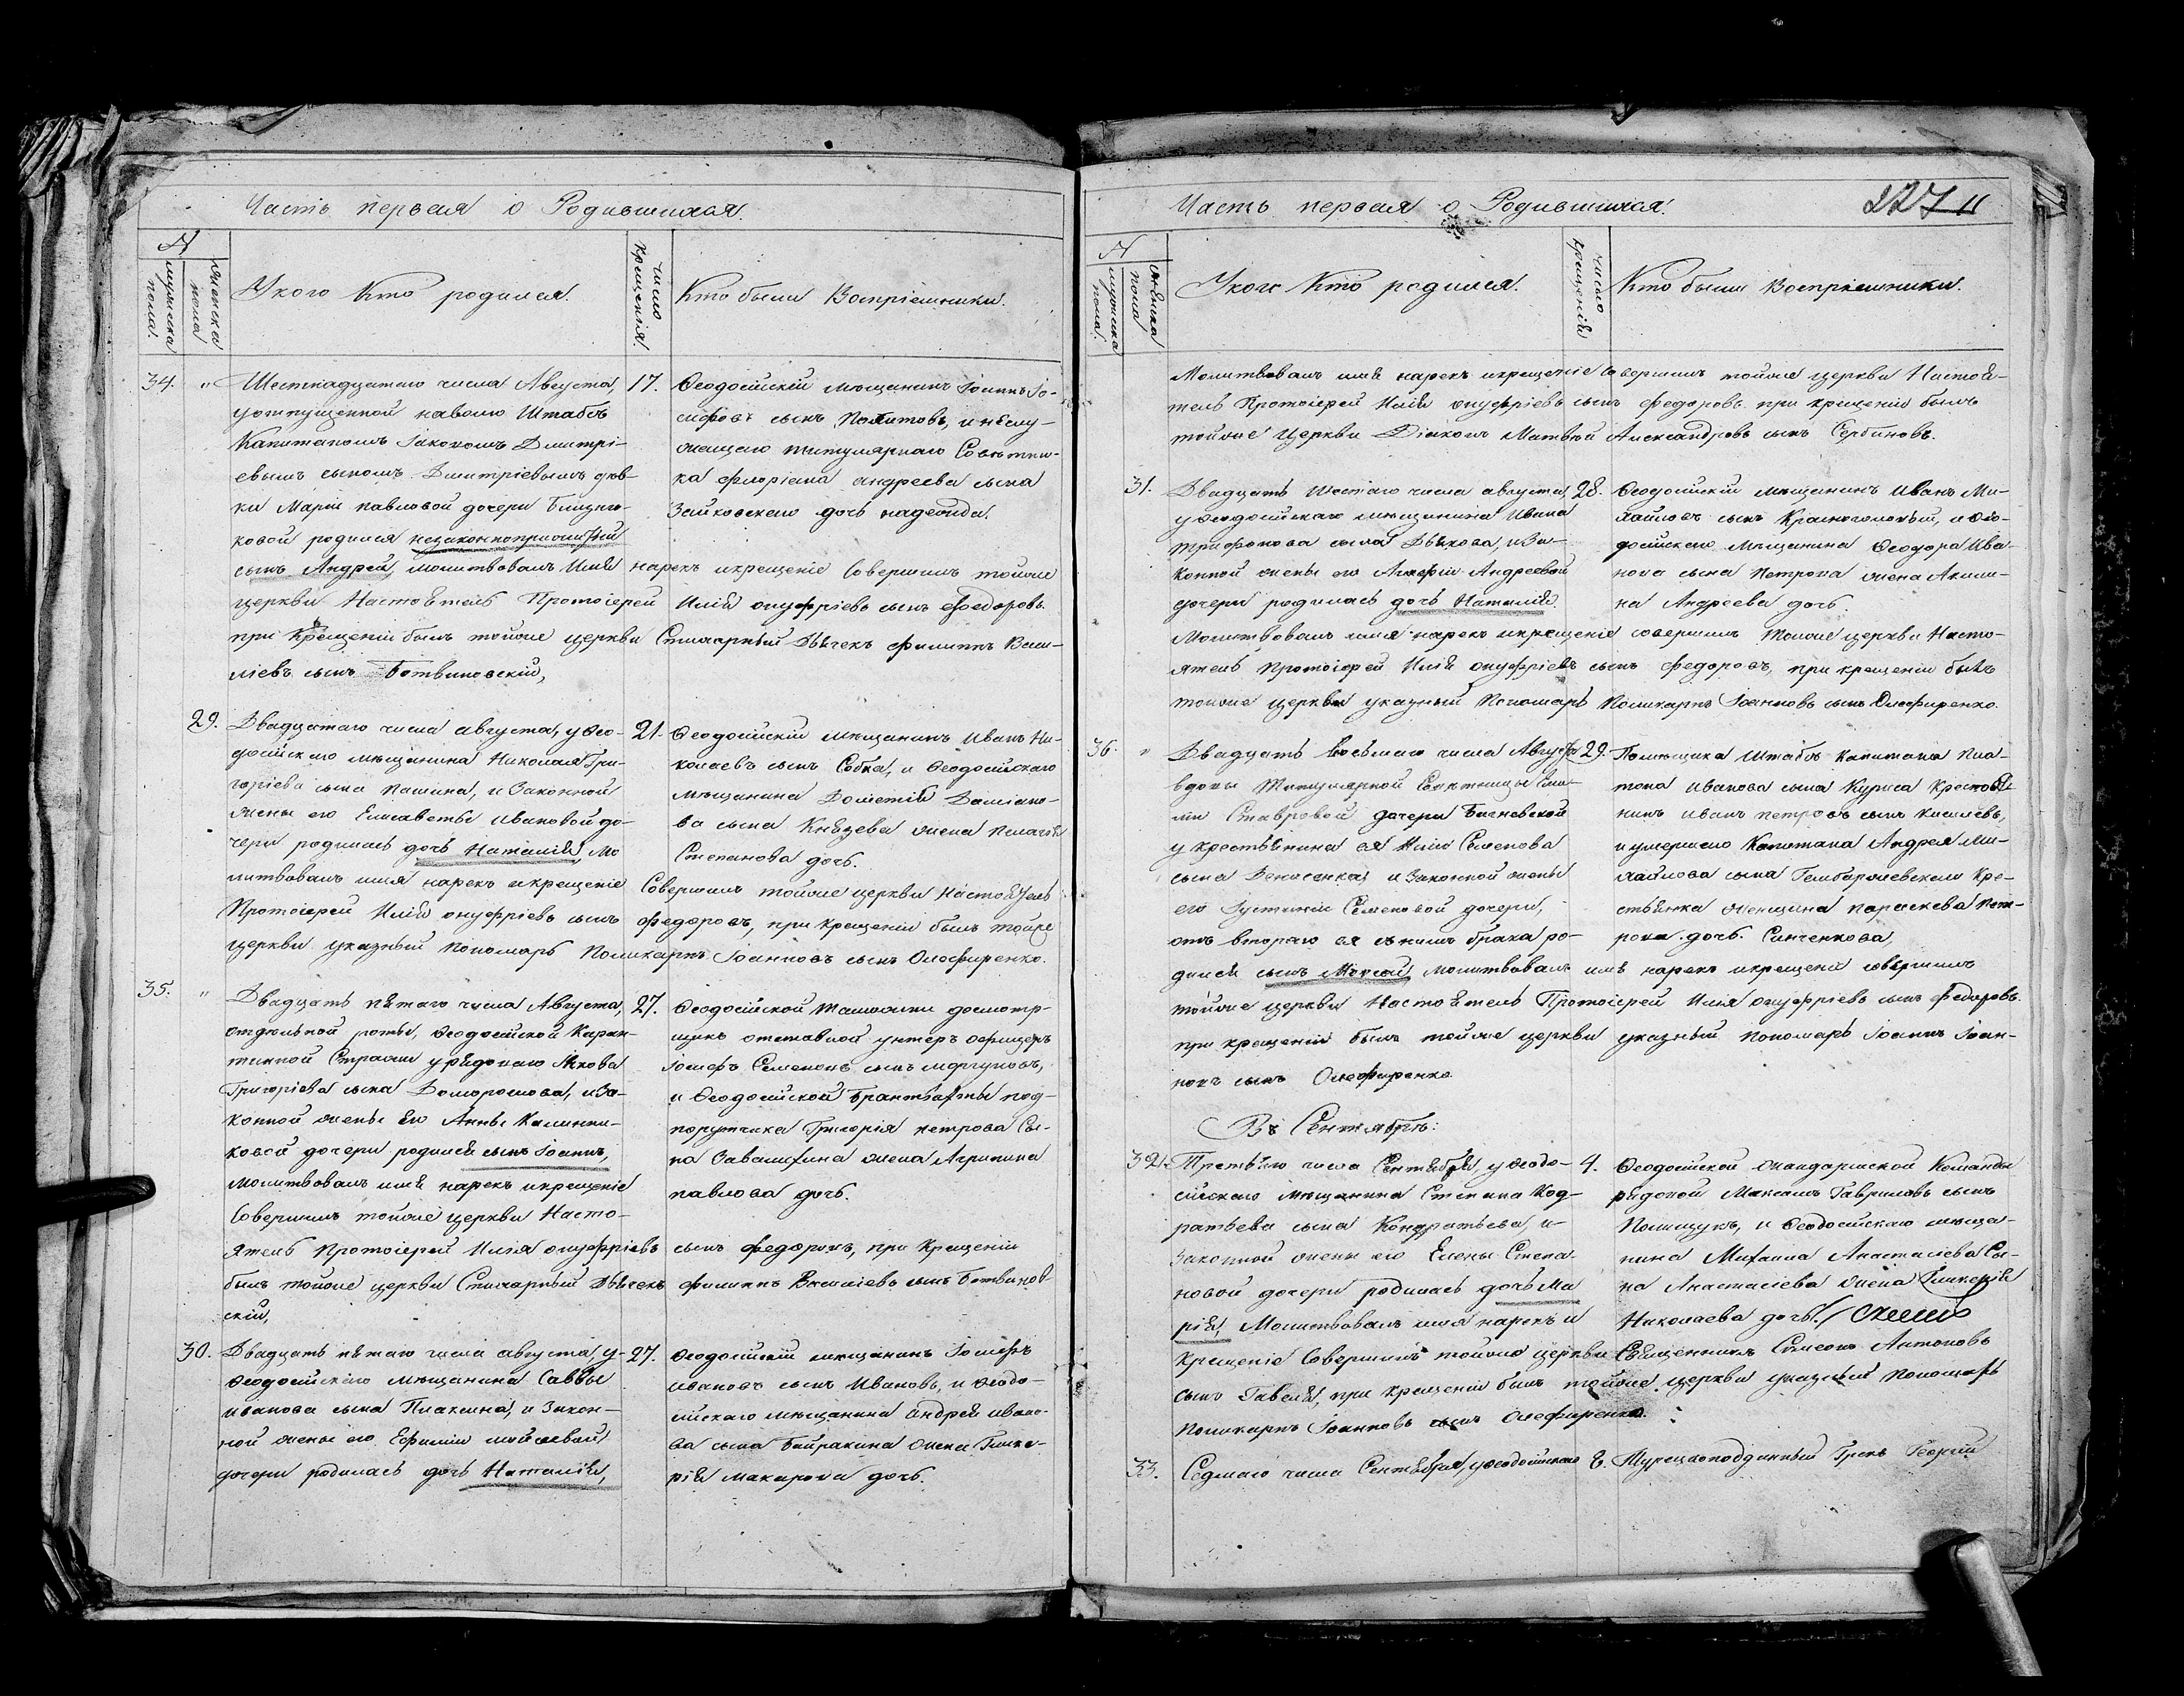 Часть первая о Родившихся.
№
мужеска пола.
женска пола
У кого кто родился.
число крещенія.
Кто были Воспріемники.
34. " Шестнадцатаго числа Августа,
у отпущенной наволю Штабсъ
Капитаномъ Іаковомъ Дмитрі-
евымъ сыномъ Дмитріевымъ дѣв-
ки Маріи Павловой дочери
ковой родился незаконноприжитый
сынъ Андрей, молитвовалъ имя нарекъ икрещеніе Совершилъ тойже
церкви Настоятель Протоіерей Илія онуфріевъ сынъ Федоровъ.
при Крещеніи былъ тойже церкви Стихарный Дьячекъ филиппъ Васи-
ліевъ сынъ Ботвиновскій,
17. Ѳеодосійскій мѣщанинъ Іоаннъ Іо-
сифовъ сынъ Политовъ, и
жещаго титулярнаго Совѣтни-
ка флоріана андреева сына
Зайковскаго дочь надежда.
29. Двадцатаго числа августа, у Ѳео-
досійскаго мѣщанина Николая Гри-
горіева сына Пашина, и Законной
жены его Елисаветы Ивановой до-
чери родилась дочь Наталія, мо
литвовалъ имя нарекъ икрещеніе Совершилъ тойже церкви Настоятель
Протоіерей Илія онуфріевъ сынъ федоровъ, при крещеніи былъ тойже
церкви указный пономарь Поликарпъ Іоанновъ сынъ Олефиренко.
21. Ѳеодосійскій мѣщанинъ Иванъ Ни-
колаевъ сынъ Собка, и Ѳеодосійскаго
мѣщанина Дометія Даміано-
ва сына Князева жена Пелагія
Степанова дочь.
35. " Двадцать пятаго числа Августа,
отдельной роты, Ѳеодосійской Каран-
тинной Стражи у рядоваго Якова
Григоріева сына Доморошова, и За-
конной жены Его Анны Калинни-
ковой дочери родился сынъ Іоаннъ,
молитвовалъ имя нарекъ икрещеніе
Совершилъ тойже церкви Насто-
ятель Протоіерей Илія онуфріевъ сынъ федоровъ, при Крещеніи
былъ тойже церкви Стихарный Дьячекъ филиппъ Василіевъ сынъ Ботвинов
скій,
27. Ѳеодосійской Таможни досмотр-
щикъ отставной унтеръ офицеръ
Іосифъ Семеновъ сынъ моргуновъ,
и Ѳеодосійской Брантвахты под-
порутчика Григорія петрова Сы-
на Завалихина жена Агрипина
павлова дочь.
30. Двадцать пятаго числа августа, у-
Ѳеодосійскаго мѣщанина Саввы
иванова сына Плаксина, и Закон-
ной жены его Ефиміи мойсевой
дочери родилась дочь Наталія,
27. Ѳеодосійскій мѣщанинъ Іосифъ
ивановъ сынъ Ивановъ, и Ѳеодо-
сійскаго мѣщанина андрея ивано-
ва сына Байракина жена Глике-
рія макарова дочь.
Часть первая о Родившихся.
227
№
мужеска пола.
женска пола
У кого Кто родился.
число крещенія
Кто были Воспріемники.
Молитвовалъ имя нарекъ икрещеніе Совершилъ тойже церкви Настоя-
тель Протоіерей Илія онуфріевъ сынъ федоровъ при крещеніи былъ
тойже Церкви Діаконъ Матвѣй Александровъ сынъ Сербиновъ.
31. Двадцать Шестаго числа августа,
у Ѳеодосійскаго мѣщанина Ивана
трифонова сына Дьякова, и За-
конной жены его Андреевой
дочери родилась дочь Наталія.
Молитвовалъ имя нарекъ икрещеніе совершилъ тойже церкви Насто-
ятель протоіерей Илія онуфріевъ сынъ федоровъ, при крещеніи былъ
тойже церкви указный Пономарь Поликарпъ Іоанновъ сынъ Олефиренко.
28. Ѳеодосійскій мѣщанинъ Иванъ Ми-
хайловъ сынъ Красноголовый, и Ѳео-
досійскаго Мѣщанина Ѳеодора Ива-
нова сына Петрова жена Акили-
на Андреева дочь.
36. " Двадцать восьмаго числа Августа
вдовы Титулярной Совѣтницы
Ставровой дочери
у крестьянина ея Иліи Семенова
сына Денисенка, и Законной жены
его Іустиніи Семеновой дочери,
отъ втораго ея съ нимъ брака ро-
дился сынъ молитвовалъ имя нарекъ икрещеніе совершилъ
тойже церкви Настоятель Протоіерей Илія онуфріевъ сынъ федоровъ.
при крещеніи былъ тойже церкви указный пономарь Іоаннъ Іоан-
новъ сынъ Олефиренко
29. Помѣщика Штабсъ Капитана Пла-
тона Иванова сына Куриса Крестья
нинъ иванъ петровъ сынъ Киселевъ,
и умершаго Капитана Андрея Ми-
хайлова сына Гембаржевскаго Кре-
стьянка женщина параскева Пет-
рова дочь Синченкова,
Въ Сентябрѣ:
32. Третьяго числа Сентября, у Ѳеодо-
сійскаго мѣщанина Степана Код-
ратьева сына Кондратьева, и
Законной жены его Елены Степа-
новой дочери родилась дочь Ма
рія, Молитвовалъ имя нарекъ и
Крещеніе Совершилъ тойже церкви Священникъ Симеонъ Антоновъ
сынъ Гавель, при крещеніи былъ тойже церкви указный пономарь
Поликарпъ Іоанновъ сынъ Олефиренко.
4. Ѳеодосійской жандармской Команды
рядовой Максимъ Гавриловъ сынъ
Полищукъ, и Ѳеодосійскаго мѣща-
нина Михаила Анастасіева Сы-
на Анастасіева жена Гликерія
Николаева дочь.
33. Седмаго числа Сентября, у Ѳеодосійскаго
8. Турецкоподданный Грекъ Георгій